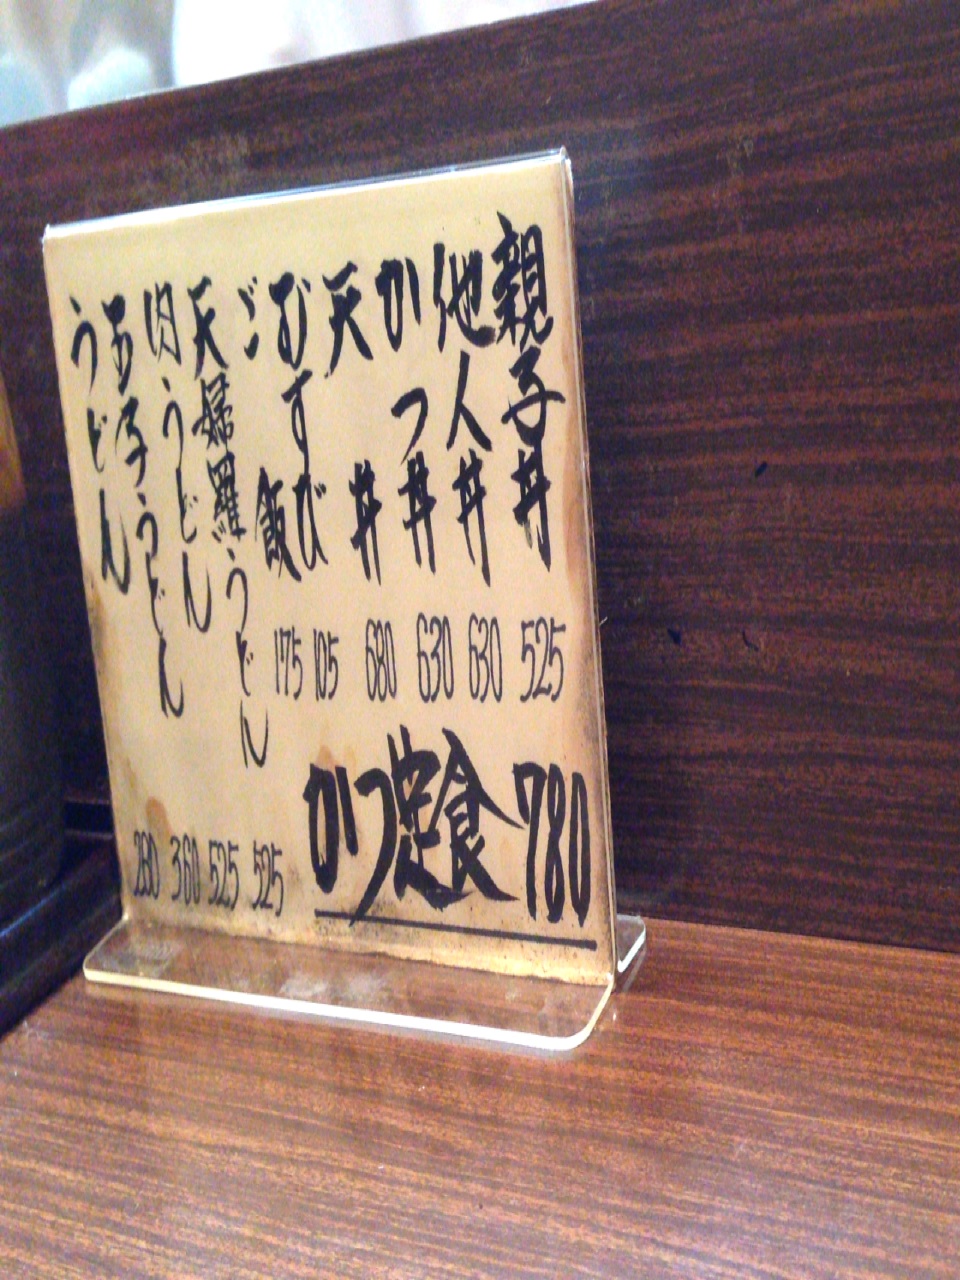 親子丼 525
他人丼 630
かつ丼 630
天丼 680
むすび 105
ご飯 175
天婦羅うどん 525
肉うどん 525
玉子うどん 360
うどん 280
かつ定食 780